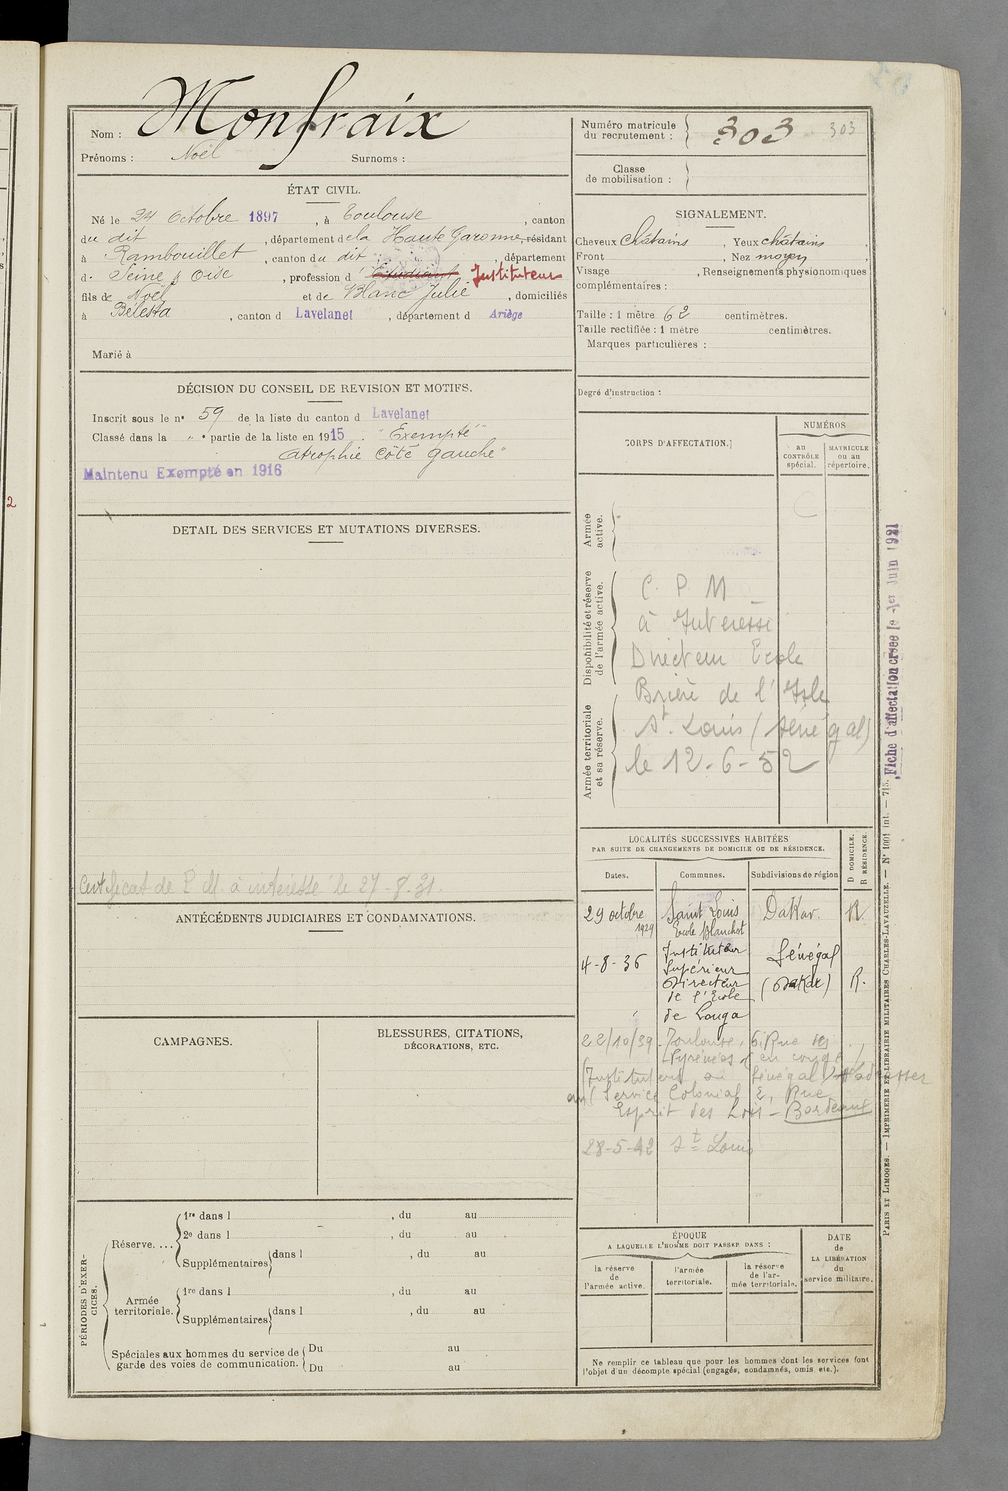 Nom : Monfraix
Prénoms : Noël Surnoms :
ÉTAT CIVIL.
Né le 24 Octobre 1897, à Toulouse, canton
du dit, département de la Haute Garonne, résidant
à Rambouillet, canton du dit, département
d. Seine & Oise, profession d' Etudiant Instituteur
fils de Noël et de Blanc Julie, domiciliés
à Bélesta, canton d Lavelanet, département d Ariège
Marié à
DÉCISION DU CONSEIL DE REVISION ET MOTIFS.
Inscrit sous le n° 59 de la liste du canton d Lavelanet
Classé dans la " • partie de la liste en 1915. "Exempté"
atrophie côté gauche"
Maintenu Exempté en 1916
DETAIL DES SERVICES ET MUTATIONS DIVERSES.
Certificat de P M. à intéressé le 27-8-31.
ANTÉCÉDENTS JUDICIAIRES ET CONDAMNATIONS.
CAMPAGNES.
BLESSURES, CITATIONS,
DÉCORATIONS, ETC.
PÉRIODES D'EXERCICES.
Réserve. ...
1re dans l , du au
2e dans l , du au
Supplémentaires dans l , du au
Armée
territoriale.
1re dans l , du au
Supplémentaires dans l , du au
Spéciales aux hommes du service de
garde des voies de communication.
Du au
Du au
Numéro matricule
du recrutement : 303 303
Classe
de mobilisation :
SIGNALEMENT.
Cheveux châtains, Yeux châtains,
Front , Nez moyen,
Visage , Renseignements physionomiques
complémentaires :
Taille : 1 mètre 62 centimètres.
Taille rectifiée : 1 mètre centimètres.
Marques particulières :
Degré d'instruction :
CORPS D'AFFECTATION.
NUMÉROS
au
CONTRÔLE
spécial.
MATRICULE
ou au
répertoire.
Armée
active.
Disponibilité et réserve
de l'armée active.
Armée territoriale
et sa réserve.
C. P. M
à Intéressé
Directeur Ecole
Brière de l'Isle
St. Louis (Sénégal)
le 12-6-52
LOCALITÉS SUCCESSIVES HABITÉES
PAR SUITE DE CHANGEMENTS DE DOMICILE OU DE RÉSIDENCE.
D DOMICILE.
R RÉSIDENCE.
Dates. Communes. Subdivisions de région
29 octobre Saint Louis Dakar. R
1929 Ecole Blanchot
4-8-36 Instituteur Sénégal
Supérieur
Directeur (Dakar) R.
de l'Ecole
de Louga
22/10/39 Toulouse, 6, Rue des
Pyrénées (en congé)
(Instituteur au Sénégal) adresser
au Service Colonial 2, Rue
Esprit des Lois - Bordeaux
28-5-42 St Louis
ÉPOQUE
A LAQUELLE L'HOMME DOIT PASSER DANS :
la réserve
de
l'armée active.
l'armée
territoriale.
la réserve
de l'ar-
mée territoriale.
DATE
de
LA LIBÉRATION
du
service militaire.
Ne remplir ce tableau que pour les hommes dont les services font
l'objet d'un décompte spécial (engagés, condamnés, omis etc.).
Fiche d'affectation créée le 1er Juin 1921
PARIS ET LIMOGES. — IMPRIMERIE ET LIBRAIRIE MILITAIRES CHARLES-LAVAUZELLE. — N° 1001 int. — 715.
2